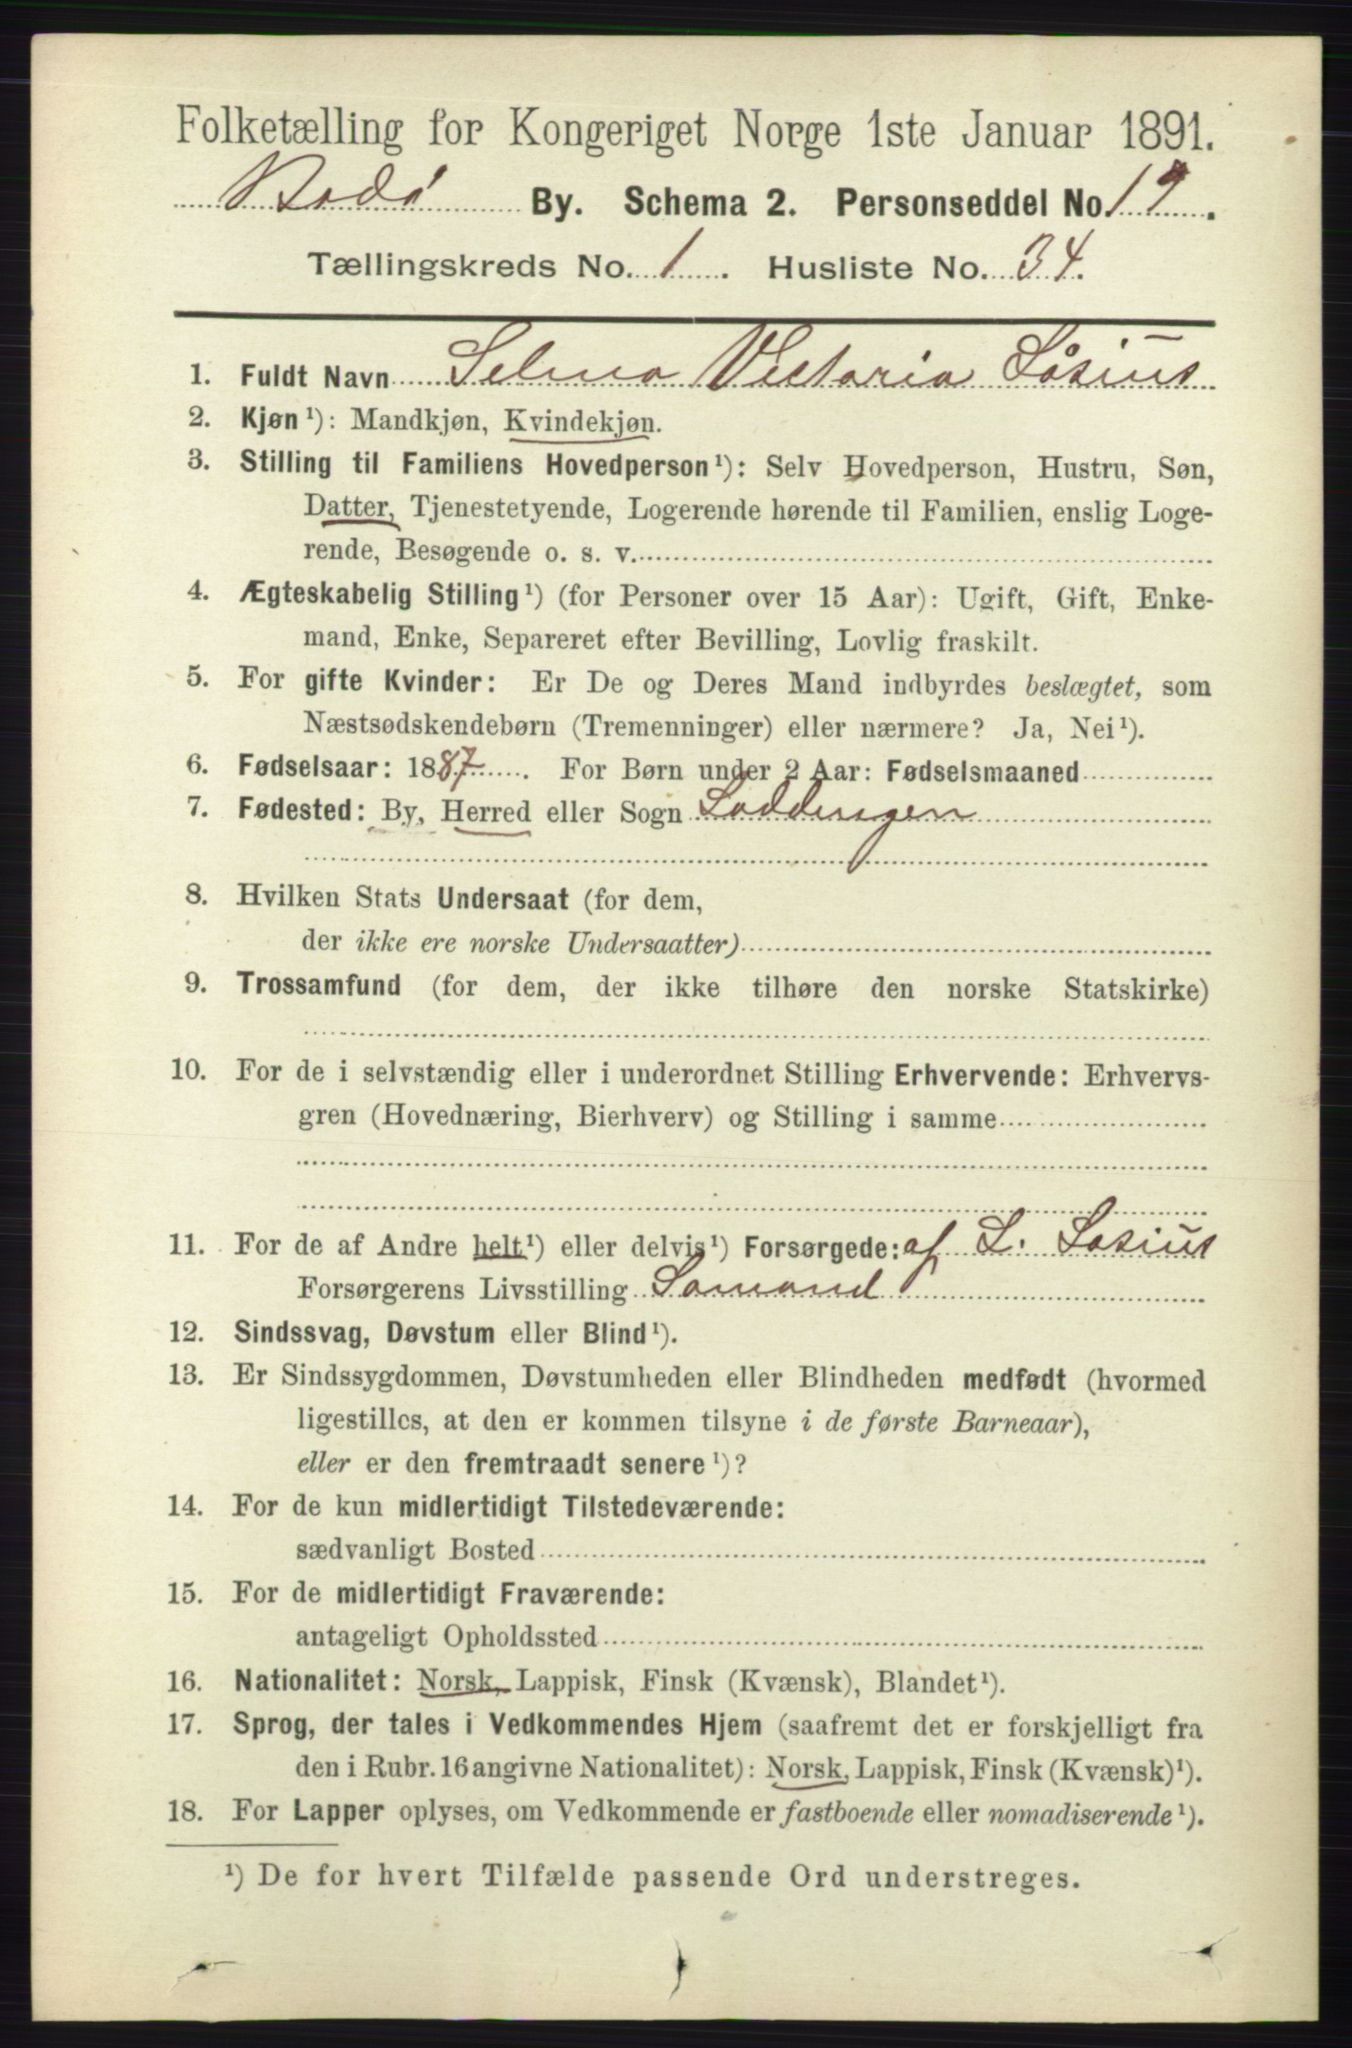 Folketælling for Kongeriget Norge 1ste Januar 1891.
Bodø By. Schema 2. Personseddel No. 19.
Tællingskreds No. 1. Husliste No. 34.
1. Fuldt Navn Selma Victoria Såsius
2. Kjøn ¹): Mandkjøn, Kvindekjøn.
3. Stilling til Familiens Hovedperson ¹): Selv Hovedperson, Hustru, Søn,
Datter, Tjenestetyende, Logerende hørende til Familien, enslig Loge-
rende, Besøgende o. s. v.
4. Ægteskabelig Stilling ¹) (for Personer over 15 Aar): Ugift, Gift, Enke-
mand, Enke, Separeret efter Bevilling, Lovlig fraskilt.
5. For gifte Kvinder: Er De og Deres Mand indbyrdes beslægtet, som
Næstsødskendebørn (Tremenninger) eller nærmere? Ja, Nei ¹).
6. Fødselsaar: 1887. For Børn under 2 Aar: Fødselsmaaned
7. Fødested: By, Herred eller Sogn Loddingen
8. Hvilken Stats Undersaat (for dem,
der ikke ere norske Undersaatter)
9. Trossamfund (for dem, der ikke tilhøre den norske Statskirke)
10. For de i selvstændig eller i underordnet Stilling Erhvervende: Erhvervs-
gren (Hovednæring, Bierhverv) og Stilling i samme
11. For de af Andre helt ¹) eller delvis ¹) Forsørgede: af L. Sosius
Forsørgerens Livsstilling Somand
12. Sindssvag, Døvstum eller Blind ¹).
13. Er Sindssygdommen, Døvstumheden eller Blindheden medfødt (hvormed
ligestilles, at den er kommen tilsyne i de første Barneaar),
eller er den fremtraadt senere ¹)?
14. For de kun midlertidigt Tilstedeværende:
sædvanligt Bosted
15. For de midlertidigt Fraværende:
antageligt Opholdssted
16. Nationalitet: Norsk, Lappisk, Finsk (Kvænsk), Blandet ¹).
17. Sprog, der tales i Vedkommendes Hjem (saafremt det er forskjelligt fra
den i Rubr. 16 angivne Nationalitet): Norsk, Lappisk, Finsk (Kvænsk) ¹).
18. For Lapper oplyses, om Vedkommende er fastboende eller nomadiserende ¹).
¹) De for hvert Tilfælde passende Ord understreges.